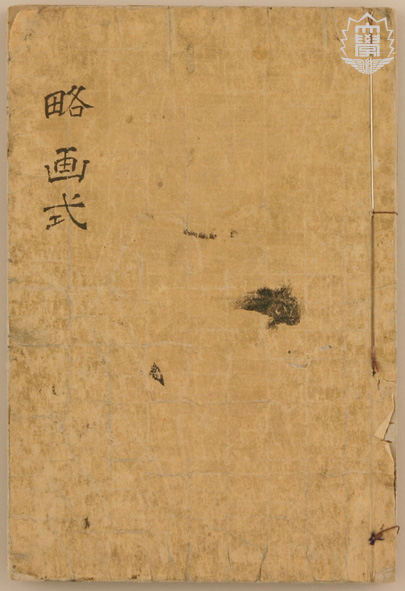 略画式